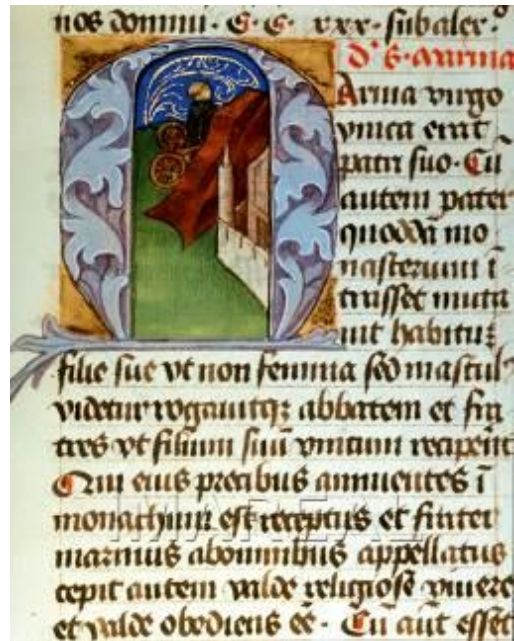 nos domini · C · C · xxx · sub aler ·
d' s · marina
Arina virgo
vnica erat
patri suo · Cū
autem pater
quoddā mo
nasterium ī
trasset muta
uit habitū
filie sue vt non femina sed mascul'
videtur rogauitqꝫ abbatem et fra
tres vt filium suū vnicum recipēt
Qui eius precibus annuentes ī
monachum est receptus et frater
marinus abomnibus appellatus
cepit autem valde religiose viuere
et valde obediens eē · Cū aut esset
IMAREAL